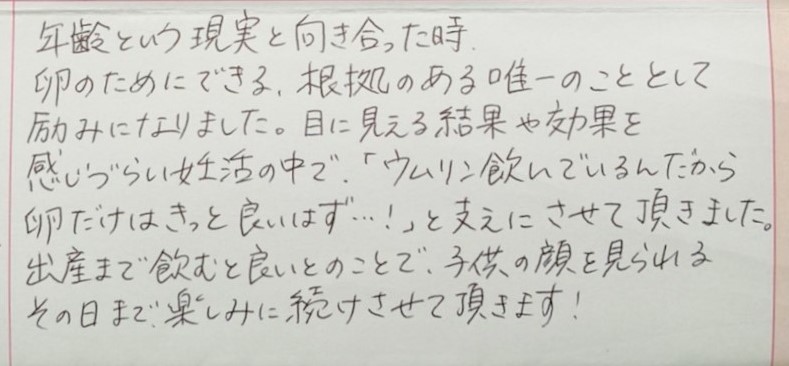 年齢という現実と向き合った時、
卵のためにできる、根拠のある唯一のこととして
励みになりました。目に見える結果や効果を
感じづらい妊活の中で、「ウムリン飲んでいるんだから
卵だけはきっと良いはず…!」と支えにさせて頂きました。
出産まで飲むと良いとのことで、子供の顔を見られる
その日まで、楽しみに続けさせて頂きます!